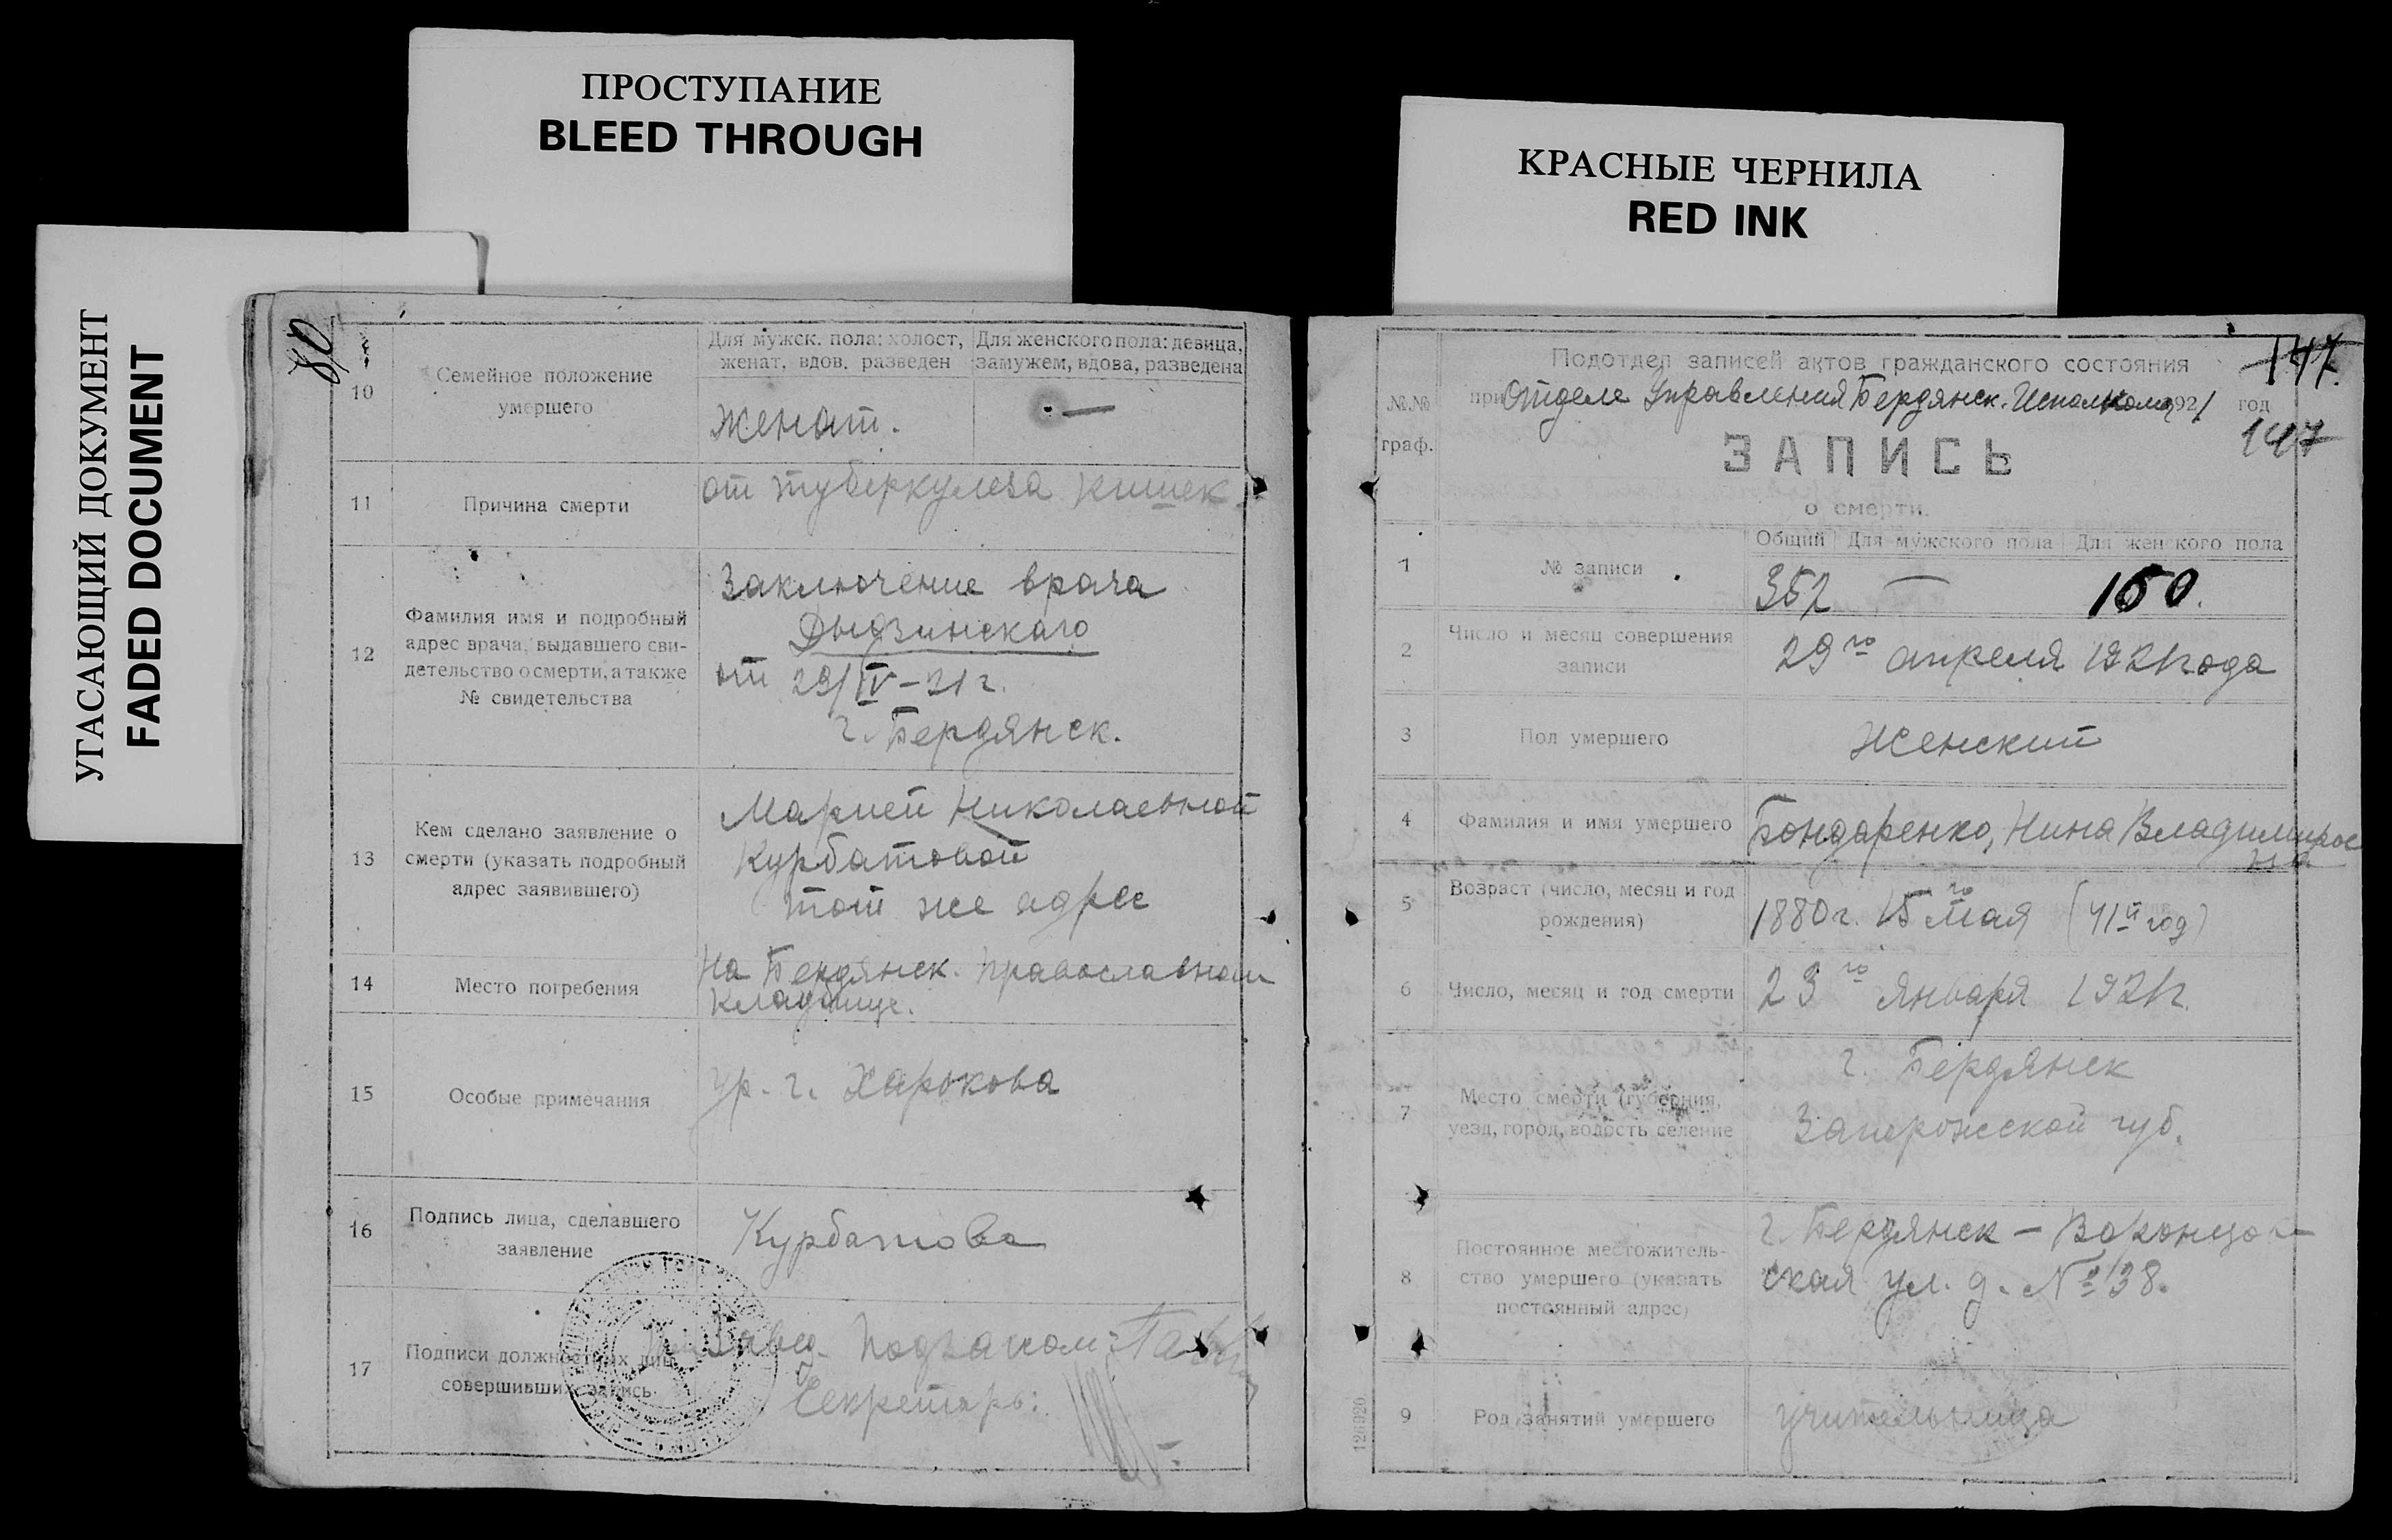 ПРОСТУПАНИЕ
BLEED THROUGH
КРАСНЫЕ ЧЕРНИЛА
RED INK
УГАСАЮЩИЙ ДОКУМЕНТ
FADED DOCUMENT
80
10
Семейное положение
умершего
Для мужск. пола: холост,
женат, вдов, разведен
Для женского пола: девица,
замужем, вдова, разведена
женат.
—
11
Причина смерти
от туберкулеза кишек
12
Фамилия имя и подробный
адрес врача, выдавшего сви-
детельство о смерти, а также
№ свидетельства
Заключение врача
Дыдзинскаго
от 29/IV-21 г.
г. Бердянск.
13
Кем сделано заявление о
смерти (указать подробный
адрес заявившего)
Марией Николаевной
Курбатовой
тот же адрес
14
Место погребения
На Бердянск. православном
кладбище.
15
Особые примечания
Ур. г. Харькова
16
Подпись лица, сделавшего
заявление
Курбатова
17
Подписи должностных лиц
совершивших запись
Завед. Подзагсом:
Секретарь:
№№
граф.
Подотдел записей актов гражданского состояния
при Отделе Управления Бердянск. Исполкома 1921 год
147.
147
ЗАПИСЬ
о смерти.
1
№ записи
Общий Для мужского пола Для женского пола
352 — 150.
2
Число и месяц совершения
записи
29го апреля 1921 года
3
Пол умершего
Женский
4
Фамилия и имя умершего
Бондаренко, Нина Владимиров
на
5
Возраст (число, месяц и год
рождения)
1880 г. 15го мая (41й год)
6
Число, месяц и год смерти
23го января 1921 г.
7
Место смерти (губерния,
уезд, город, волость селение
г. Бердянск
Запорожской губ.
8
Постоянное местожитель-
ство умершего (указать
постоянный адрес)
г. Бердянск – Воронцов-
ская ул. д. № 138.
9
Род занятий умершего
учительница